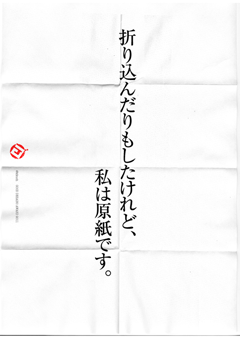 折り込んだりもしたけれど、
私は原紙です。